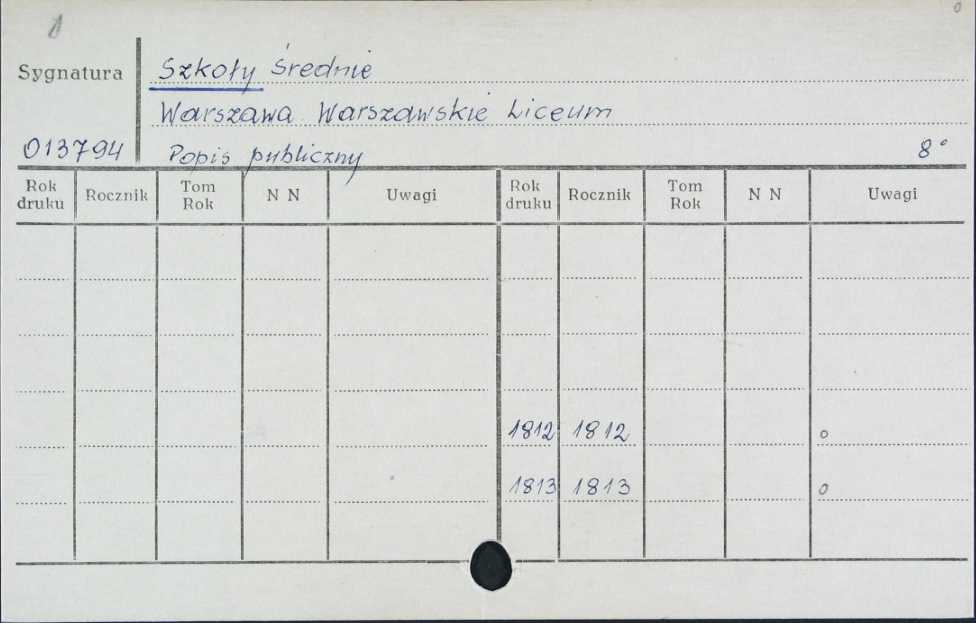 Sygnatura
Szkoły Średnie
Warszawa Warszawskie Liceum
013794 Popis publiczny 8°
Rok druku Rocznik Tom Rok N N Uwagi Rok druku Rocznik Tom Rok N N Uwagi
1812 1812 o
1813 1813 o